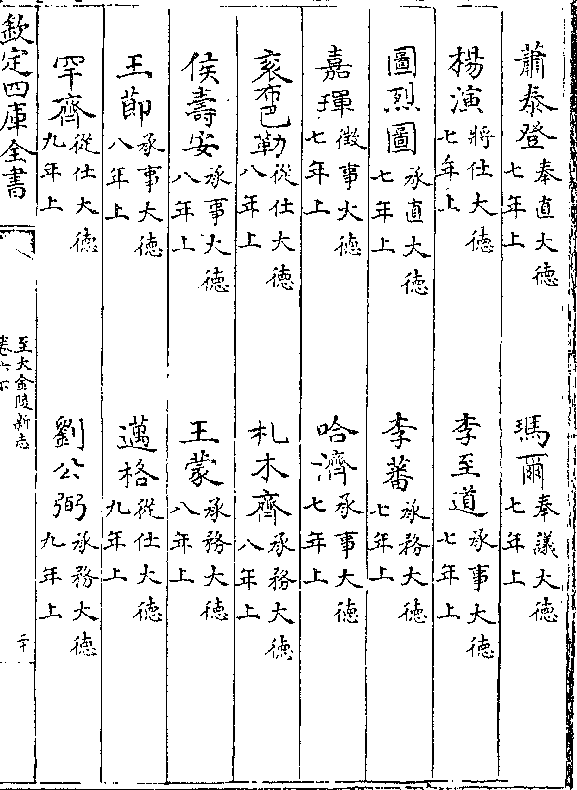 蕭泰登奉直大德七年上 瑪爾奉議大德七年上
楊演將仕大德七年上 李至道承事大德七年上
圖烈圖承直大德七年上 李蕃承務大德七年上
嘉琿徴事大德七年上 哈濟承事大德七年上
袞布巴勒從仕大德八年上 札木齊承務大德八年上
侯壽安承事大德八年上 王蒙承務大德八年上
王節承事大德八年上 邁格從仕大德九年上
罕齊從仕大德九年上 劉公弼承務大德九年上
欽定四庫全書
至大金陵新志
卷六下
二十